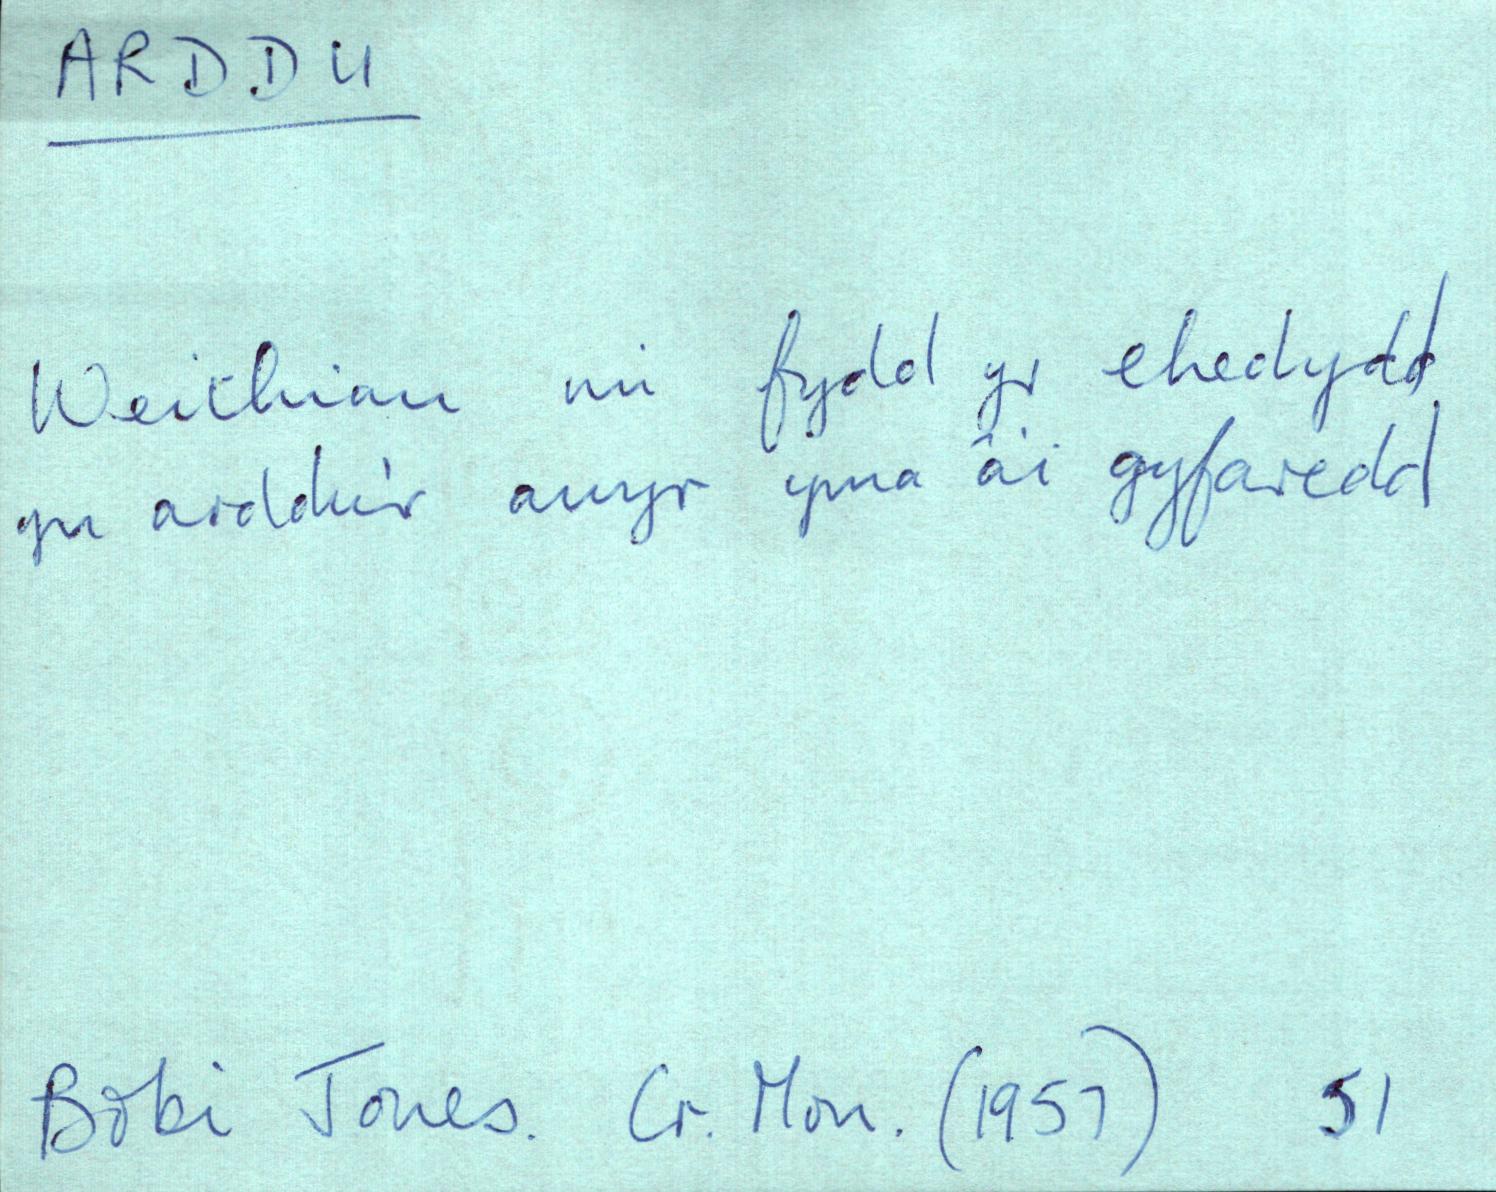 ARDDU
Weithiau mi fydd yr ehedydd
yn arddu'r awyr yma â'i gyfaredd
Bobi Jones. Cr. Mon. (1957) 51